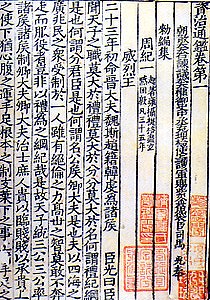 資治通鑑卷第一
朝散大夫右諫議大夫權御史中丞充理檢使上護軍賜紫金魚袋臣司馬光奉
勑編集
周紀一 起著雍攝提格盡玄黓困敦凡三十五年
威烈王
二十三年初命晉大夫魏斯趙籍韓虔為諸侯 臣光曰臣
聞天子之職莫大於禮禮莫大於分分莫大於名何謂禮紀綱
是也何謂分君臣是也何謂名公侯卿大夫是也夫以四海之
廣兆民之衆受制於一人雖有絶倫之力高世之智莫敢不奔
走而服役者豈非以禮為之綱紀哉是故天子統三公三公率
諸侯諸侯制卿大夫卿大夫治士庶人貴以臨賤賤以承貴上
之使下猶心腹之運手足根本之制支葉下之事上猶手足之